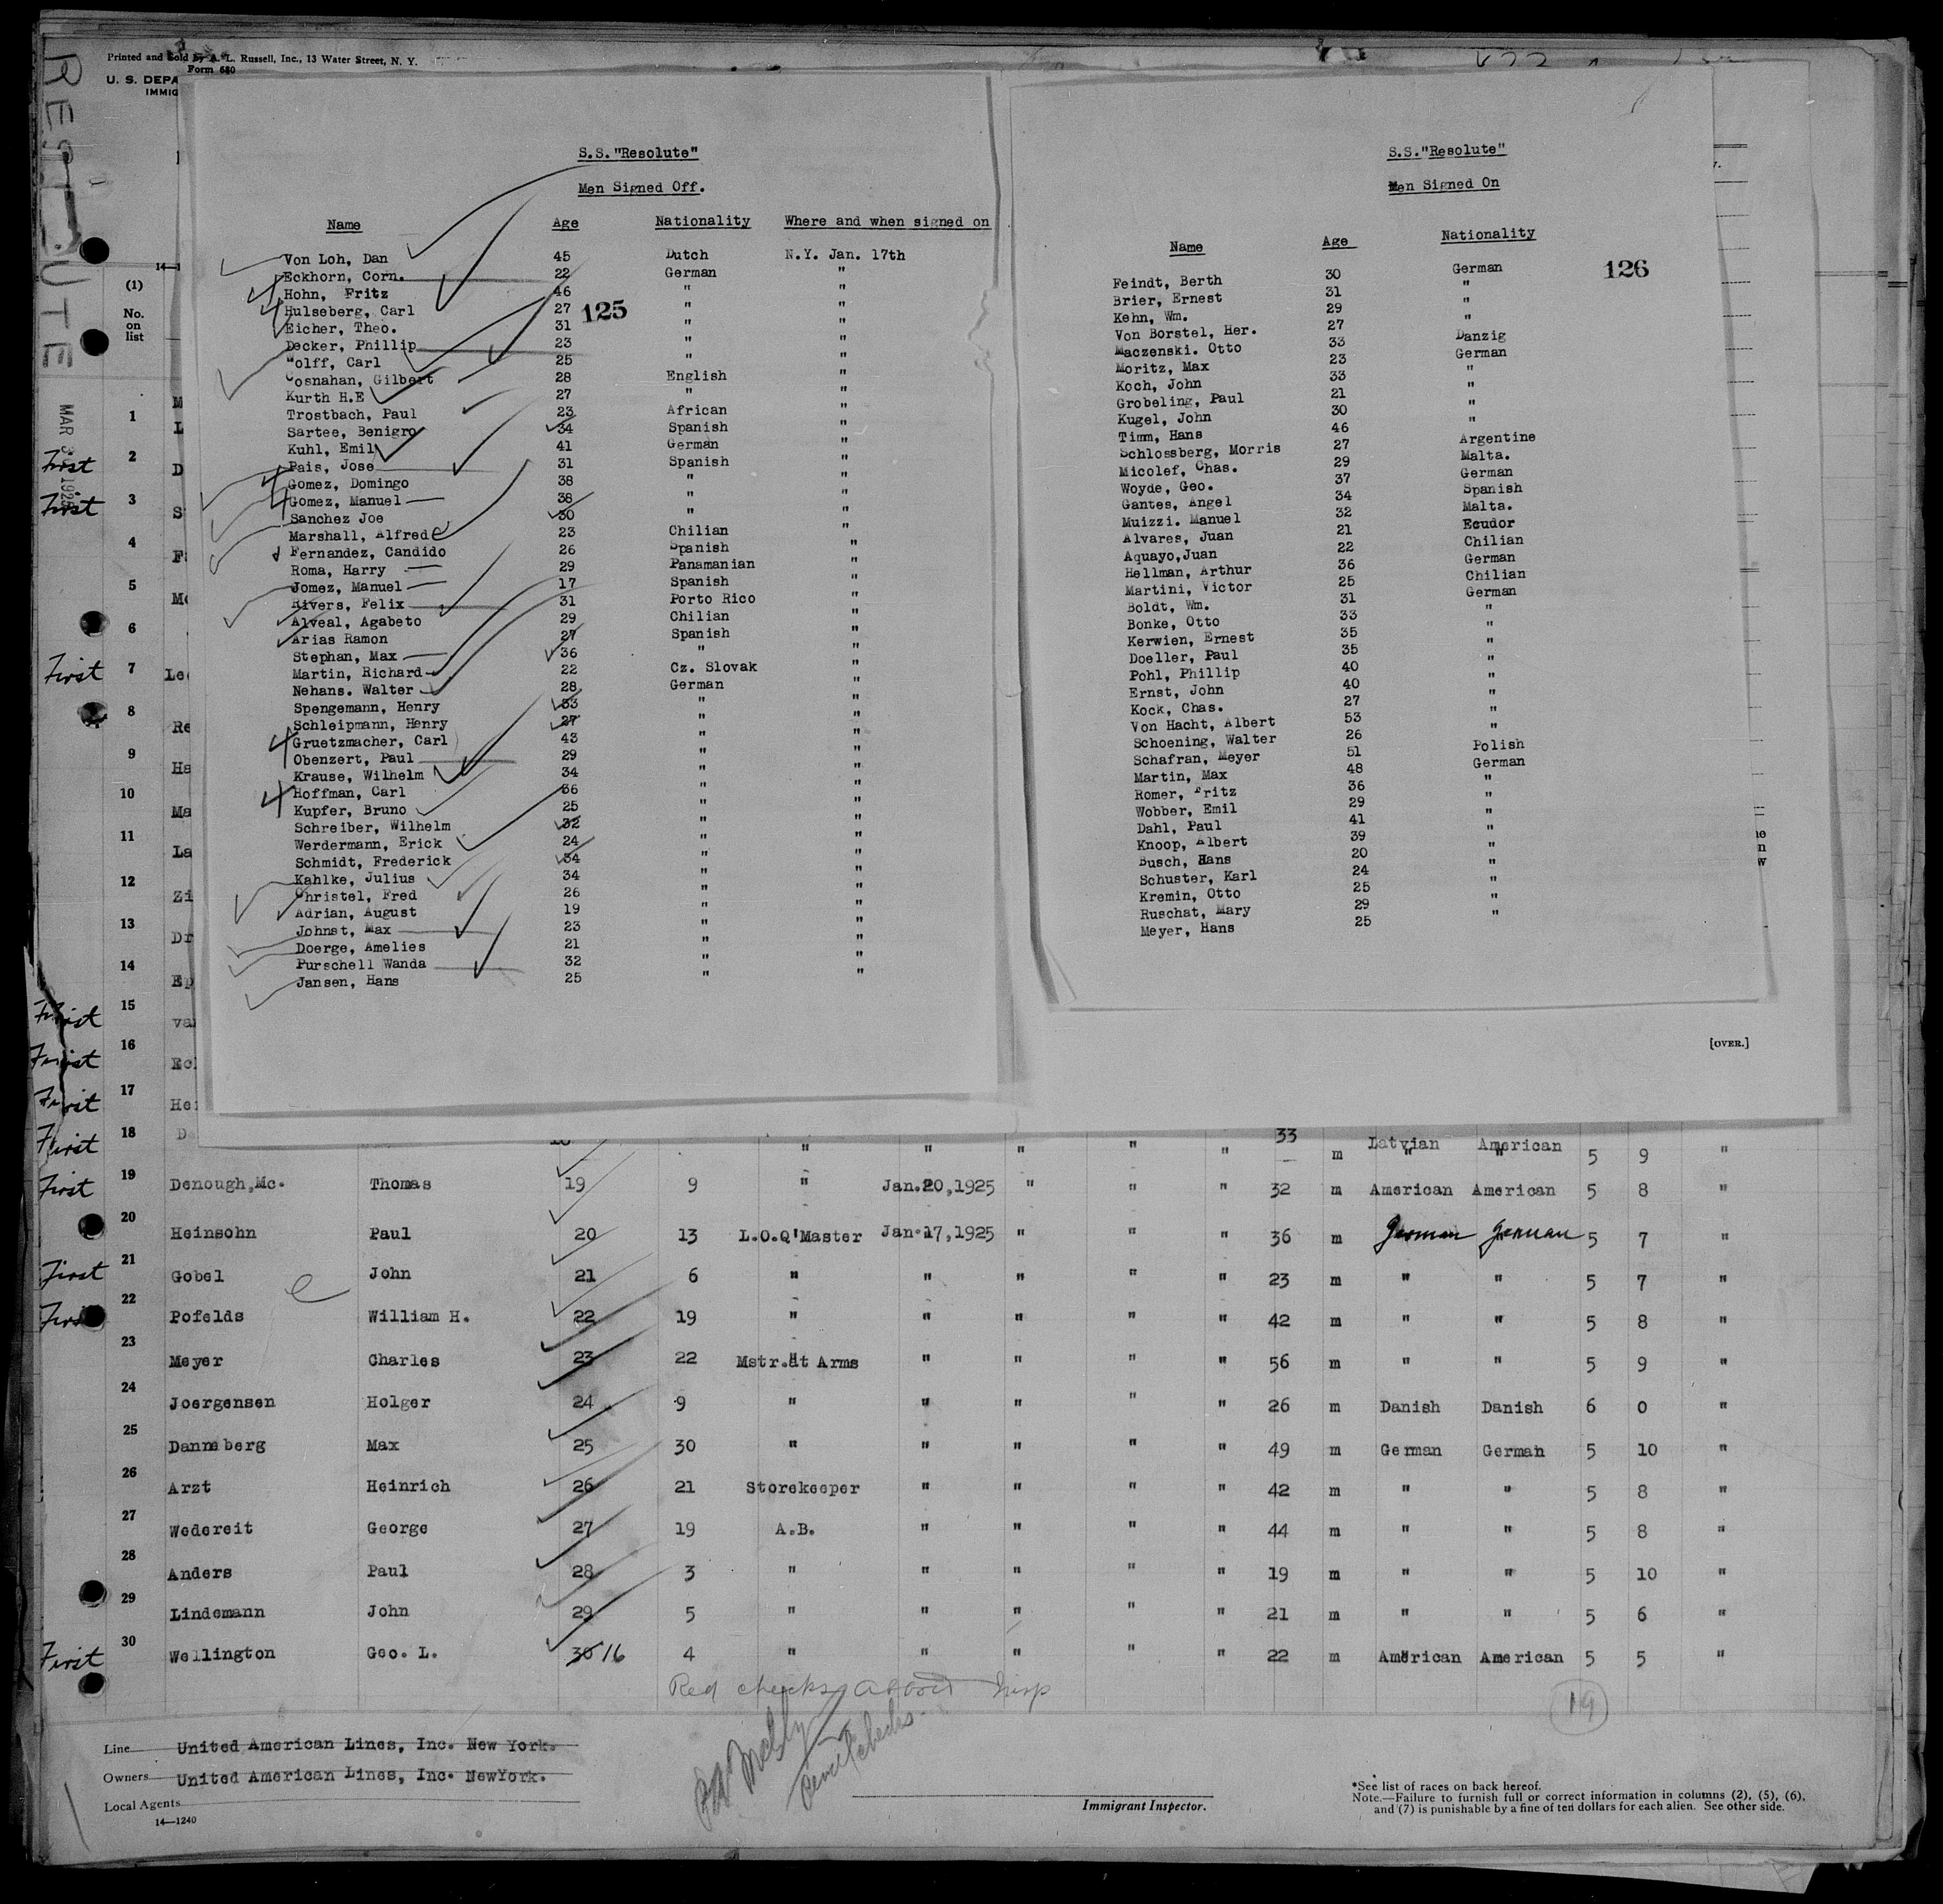 Printed and Sold by A. L. Russell, Inc., 13 Water Street, N. Y.
Form 680
U. S. DEPA
IMMIG
RESOLUTE
MAR 3 1925
S.S."Resolute"
Men Signed Off.
Name Age Nationality Where and when signed on
Von Loh, Dan 45 Dutch N.Y. Jan. 17th
Eckhorn, Corn. 22 German "
Hohn, Fritz 46 " "
Hulseberg, Carl 27 " "
125
Eicher, Theo. 31 " "
Decker, Phillip 23 " "
Wolff, Carl 25 " "
Cosnahan, Gilbert 28 English "
Kurth H.E 27 " "
Trostbach, Paul 23 African "
Sartee, Benigro 34 Spanish "
Kuhl, Emil 41 German "
Pais, Jose 31 Spanish "
Gomez, Domingo 38 " "
Gomez, Manuel 38 " "
Sanchez Joe 30 " "
Marshall, Alfred 23 Chilian "
Fernandez, Candido 26 Spanish "
Roma, Harry 29 Panamanian "
Jomez, Manuel 17 Spanish "
Rivers, Felix 31 Porto Rico "
Alveal, Agabeto 29 Chilian "
Arias Ramon 27 Spanish "
Stephan, Max 36 " "
Martin, Richard 22 Cz. Slovak "
Nehans. Walter 28 German "
Spengemann, Henry 33 " "
Schleipmann, Henry 27 " "
Gruetzmacher, Carl 43 " "
Obenzert, Paul 29 " "
Krause, Wilhelm 34 " "
Hoffman, Carl 36 " "
Kupfer, Bruno 25 " "
Schreiber, Wilhelm 32 " "
Werdermann, Erick 24 " "
Schmidt, Frederick 34 " "
Kahlke, Julius 34 " "
Christel, Fred 26 " "
Adrian, August 19 " "
Johnst, Max 23 " "
Doerge, Amelies 21 " "
Purschell Wanda 32 " "
Jansen, Hans 25 " "
S.S."Resolute"
Men Signed On
Name Age Nationality
126
Feindt, Berth 30 German
Brier, Ernest 31 "
Kehn, Wm. 29 "
Von Borstel, Her. 27 "
Maczenski. Otto 33 Danzig
Moritz, Max 23 German
Koch, John 33 "
Grobeling, Paul 21 "
Kugel, John 30 "
Timm, Hans 46 "
Schlossberg, Morris 27 Argentine
Micolef, Chas. 29 Malta.
Woyde, Geo. 37 German
Gantes, Angel 34 Spanish
Muizzi. Manuel 32 Malta.
Alvares, Juan 21 Ecudor
Aquayo,Juan 22 Chilian
Hellman, Arthur 36 German
Martini, Victor 25 Chilian
Boldt, Wm. 31 German
Bonke, Otto 33 "
Kerwien, Ernest 35 "
Doeller, Paul 35 "
Pohl, Phillip 40 "
Ernst, John 40 "
Kock, Chas. 27 "
Von Hacht, Albert 53 "
Schoening, Walter 26 "
Schafran, Meyer 51 Polish
Martin, Max 48 German
Romer, Fritz 36 "
Wobber, Emil 29 "
Dahl, Paul 41 "
Knoop, Albert 39 "
Busch, Hans 20 "
Schuster, Karl 24 "
Kremin, Otto 25 "
Ruschat, Mary 29 "
Meyer, Hans 25 "
[OVER.]
(1)
No.
on
list
1 L
First 2 D
First 3 S
4 F
5 Mc
6
First 7 Le
8 Re
9 Ha
10 Ma
11 La
12 Zi
13 Dr
14 Ep
First 15 va
First 16 Ec
First 17 He
First 18 De " " " " " 33 m Latvian " American " 5 9 "
First 19 Denough,Mc. Thomas 19 9 " Jan.20,1925 " " " 32 m American American 5 8 "
20 Heinsohn Paul 20 13 L.O.Q'Master Jan.17,1925 " " 36 m German German 5 7 "
First 21 Gobel John 21 6 " " " " " 23 m " " 5 7 "
First 22 Pofelds William H. 22 19 " " " " " 42 m " " 5 8 "
23 Meyer Charles 23 22 Mstr.at Arms " " " " 56 m " " 5 9 "
24 Joergensen Holger 24 9 " " " " " 26 m Danish Danish 6 0 "
25 Danneberg Max 25 30 " " " " " 49 m German German 5 10 "
26 Arzt Heinrich 26 21 Storekeeper " " " " 42 m " " 5 8 "
27 Wedereit George 27 19 A.B. " " " " 44 m " " 5 8 "
28 Anders Paul 28 3 " " " " " 19 m " " 5 10 "
29 Lindemann John 29 5 " " " " " 21 m " " 5 6 "
First 30 Wellington Geo. L. 30 16 4 " " " " " 22 m American American 5 5 "
Red checks aboard Insp
19
Line United American Lines, Inc. New York.
Owners United American Lines, Inc. NewYork.
Local Agents
14—1240
Immigrant Inspector.
*See list of races on back hereof.
Note.—Failure to furnish full or correct information in columns (2), (5), (6),
and (7) is punishable by a fine of ten dollars for each alien. See other side.